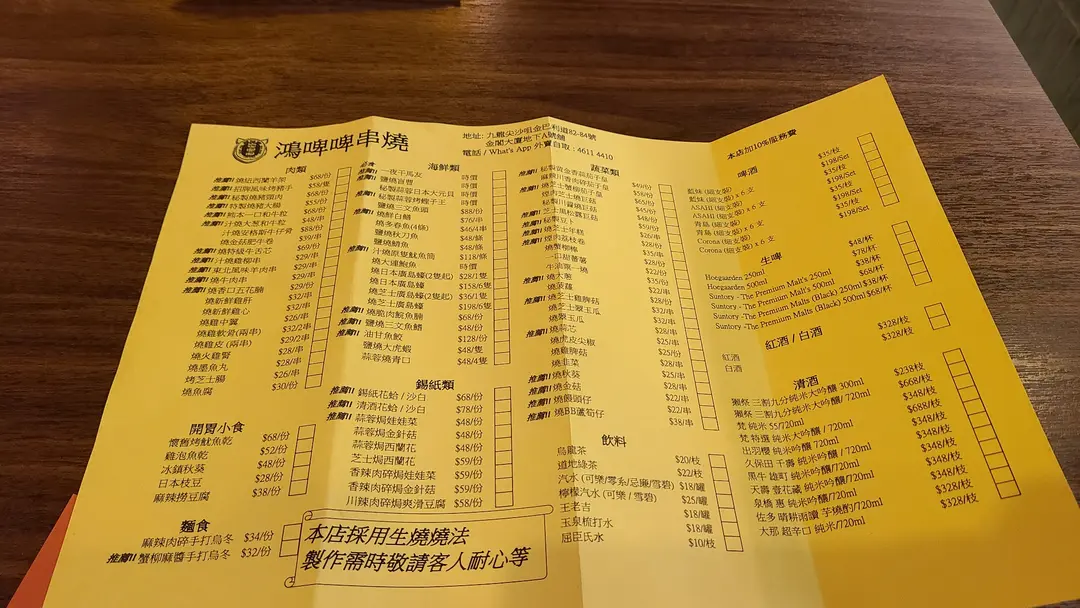 鴻啤啤串燒
地址: 九龍尖沙咀金巴利道82-84號
金閣大廈地下A號舖
電話 / What's App 外賣自取 : 4611 4410
肉類
推薦!! 燒紐西蘭羊架 $68/份
推薦!! 招牌風味烤豬手 $58/隻
推薦!! 秘製燒豬頸肉 $68/份
推薦!! 特製燒豬大腸 $55/份
推薦!! 熊本一口和牛粒 $68/份
推薦!! 汁燒大蔥和牛粒
汁燒安格斯牛仔骨 $88/份
燒金菇肥牛卷 $39/串
推薦!! 燒特級牛舌芯 $69/份
推薦!! 汁燒雞柳串
推薦!! 東北風味羊肉串 $29/串
燒牛肉串
推薦!! 燒香口五花腩
燒新鮮雞肝 $32/串
燒新鮮雞心 $32/串
燒雞中翼
燒雞軟骨(兩串) $32/2串
燒雞皮 (兩串) $29/2串
燒火雞腎 $28/串
燒墨魚丸 $28/串
烤芝士腸 $26/串
燒魚腐 $30/份
開胃小食
懷舊烤魷魚乾 $68/份
雞泡魚乾 $52/份
冰鎮秋葵 $48/份
日本枝豆 $28/份
麻辣撈豆腐 $38/份
麵食
麻辣肉碎手打烏冬 $34/份
推薦!! 蟹柳麻醬手打烏冬 $32/份
海鮮類
必食 一夜干馬友 時價
推薦!! 鹽燒盲曹 時價
秘製蒜蓉日本大元貝 時價
秘製蒜蓉烤蟶子王 時價
鹽燒三文魚頭 $88/份
推薦!! 燒鮮白鱔 $76/串
燒多春魚(4條) $46/4串
鹽燒秋刀魚 $48/條
鹽燒鯖魚 $48/條
推薦!! 汁燒原隻魷魚筒 $118/條
燒大連鮑魚 時價
燒日本廣島蠔(2隻起) $28/1隻
燒日本廣島蠔 $158/6隻
燒芝士廣島蠔(2隻起) $36/1隻
燒芝士廣島蠔 $198/6隻
推薦!! 燒脆肉鯇魚腩 $68/份
推薦!! 鹽燒三文魚鰭 $48/份
推薦!! 油甘魚鮫 $128/份
鹽燒大虎蝦 $48/隻
蒜蓉燒青口 $48/4隻
錫紙類
推薦!! 錫紙花蛤 / 沙白 $68/份
推薦!! 清酒花蛤 / 沙白 $78/份
蒜蓉焗娃娃菜 $48/份
蒜蓉焗金針菇 $48/份
蒜蓉焗西蘭花 $48/份
芝士焗西蘭花 $59/份
香辣肉碎焗娃娃菜 $59/份
香辣肉碎焗金針菇 $59/份
川辣肉碎焗爽滑豆腐 $58/份
本店採用生燒燒法
製作需時敬請客人耐心等
蔬菜類
推薦!! 秘製黃金香蒜茄子皇 $49/份
麻辣川香肉碎茄子皇 $58/份
推薦!! 燒芝士蟹柳茄子皇 $65/份
煙肉芝士燒豆菇 $45/份
秘製川燒豆菇 $48/份
推薦!! 芝士風松露豆菇
推薦!! 秘製豆卜
推薦!! 燒芝士年糕 $26/串
推薦!! 煙肉荔枝卷 $28/份
燒蟹柳棒 $35/串
一口甜蕃薯 $28/份
牛油粟一燒 $22/份
推薦!! 燒大蔥 $35/串
燒菠蘿 $22/串
推薦!! 燒芝士雞髀菇 $28/份
燒芝士翠玉瓜 $32/串
燒翠玉瓜 $28/串
推薦!! 燒蒜芯 $28/串
燒虎皮尖椒 $25/串
燒雞髀菇 $25/份
燒韭菜 $28/串
推薦!! 燒秋葵 $25/串
推薦!! 燒金菇 $28/串
推薦!! 燒饅頭仔 $22/串
推薦!! 燒BB蘆筍仔 $38/串
飲料
烏龍茶 $20/枝
道地綠茶 $22/枝
汽水 (可樂/零系/忌廉/雪碧) $18/罐
檸檬汽水 (可樂 / 雪碧) $25/罐
王老吉 $18/罐
玉泉梳打水 $18/罐
屈臣氏水 $10/枝
本店加10%服務費
啤酒
藍妹 (細支裝) $35/枝
藍妹 (細支裝) x 6 支 $198/Set
ASAHI (細支裝) $35/枝
ASAHI (細支裝) x 6 支 $198/Set
青島 (細支裝) $35/枝
青島 (細支裝) x 6 支 $198/Set
Corona (細支裝) $35/枝
Corona (細支裝) x 6 支 $198/Set
生啤
Hoegaarden 250ml $48/杯
Hoegaarden 500ml $78/杯
Suntory -The Premium Malt's 250ml $38/杯
Suntory -The Premium Malt's 500ml $68/杯
Suntory -The Premium Malts (Black) 250ml $38/杯
Suntory -The Premium Malts (Black) 500ml $68/杯
紅酒 / 白酒
紅酒 $328/枝
白酒 $328/枝
清酒
獺祭 三割九分純米大吟釀 300ml $238/枝
獺祭 三割九分純米大吟釀 /720ml $668/枝
梵 純米 55/720ml $348/枝
梵 特選 純米大吟釀 / 720ml $688/枝
出羽櫻 純米吟釀 / 720ml $348/枝
久保田 千壽 純米吟釀 / 720ml $348/枝
黑牛 雄町 純米吟釀/720ml $348/枝
天壽 壹花藏 純米吟釀/720ml $348/枝
泉橋 惠 純米吟釀/720ml $348/枝
佐多 晴耕雨讀 芋燒酌/720ml $348/枝
大那 超辛口 純米/720ml $328/枝